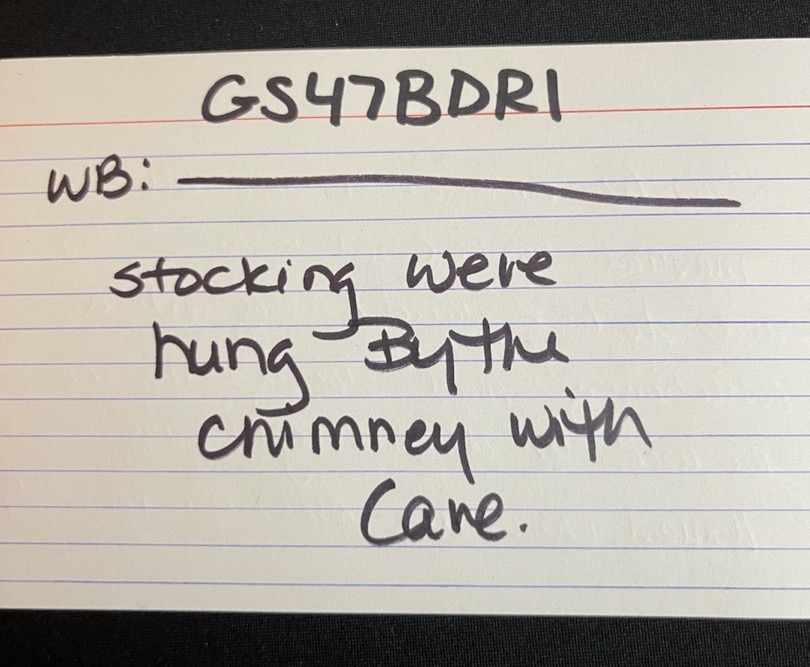 GS47BDR1
WB:
stocking were
hung By the
chimney with
Care.